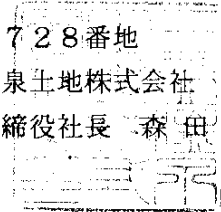 ７２８番地
泉土地株式会社
締役社長 森田